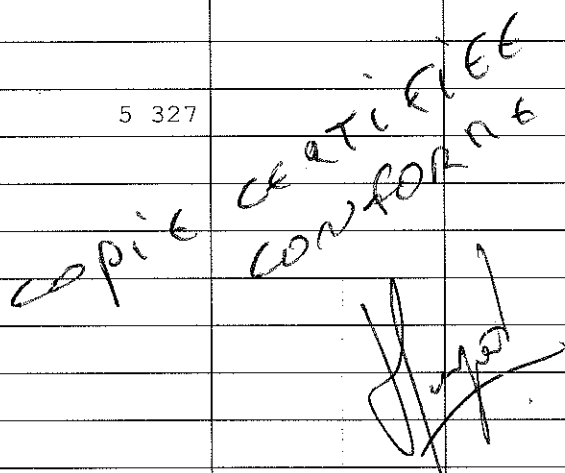 5 327
COPIE CERTIFIEE
CONFORME